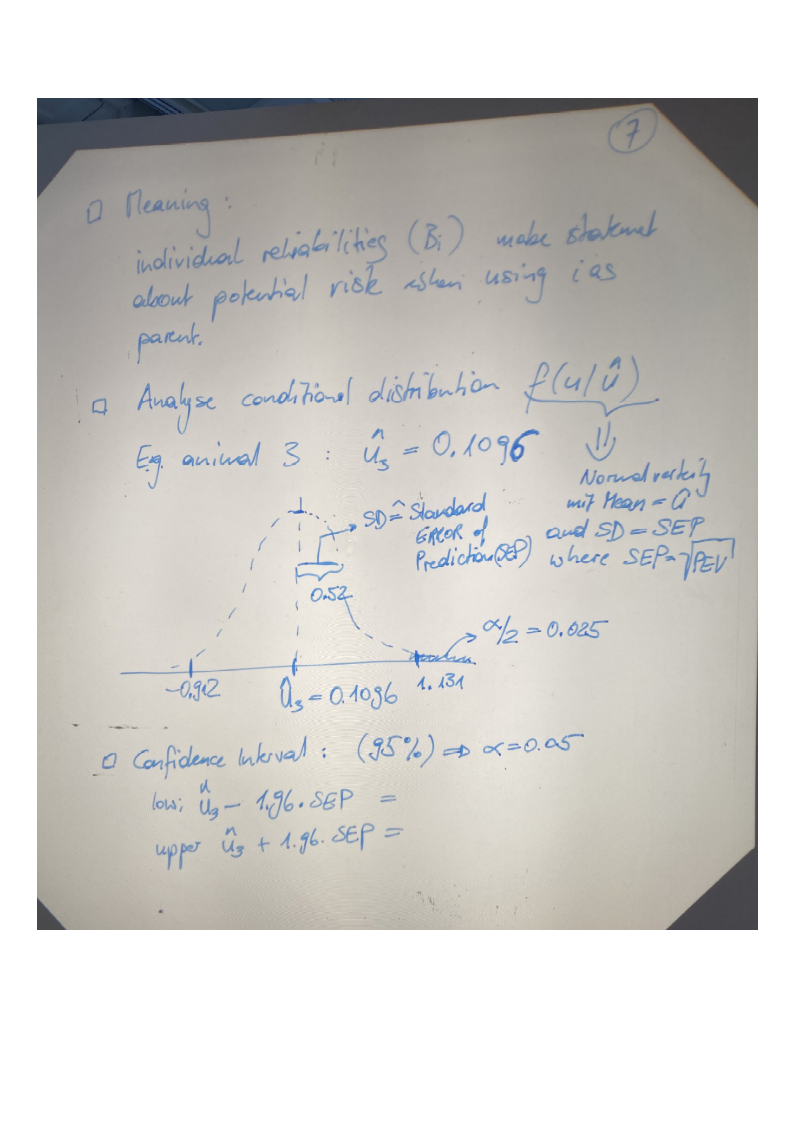 7
□ Meaning:
individual reliabilities (Bi) make statement
about potential risk when using i as
parent.
□ Analyse conditional distribution f(u/û)
E.g. animal 3 : û₃ = 0.1096
⇓
Normalverteilg
mit Mean = û
and SD = SEP
where SEP = √PEV
SD ≙ Standard
ERROR of
Prediction (SEP)
0.52
α/2 = 0.025
-0.912
û₃ = 0.1096
1.131
□ Confidence Interval : (95%) ⇒ α = 0.05
low: û₃ - 1.96 · SEP =
upper û₃ + 1.96 · SEP =